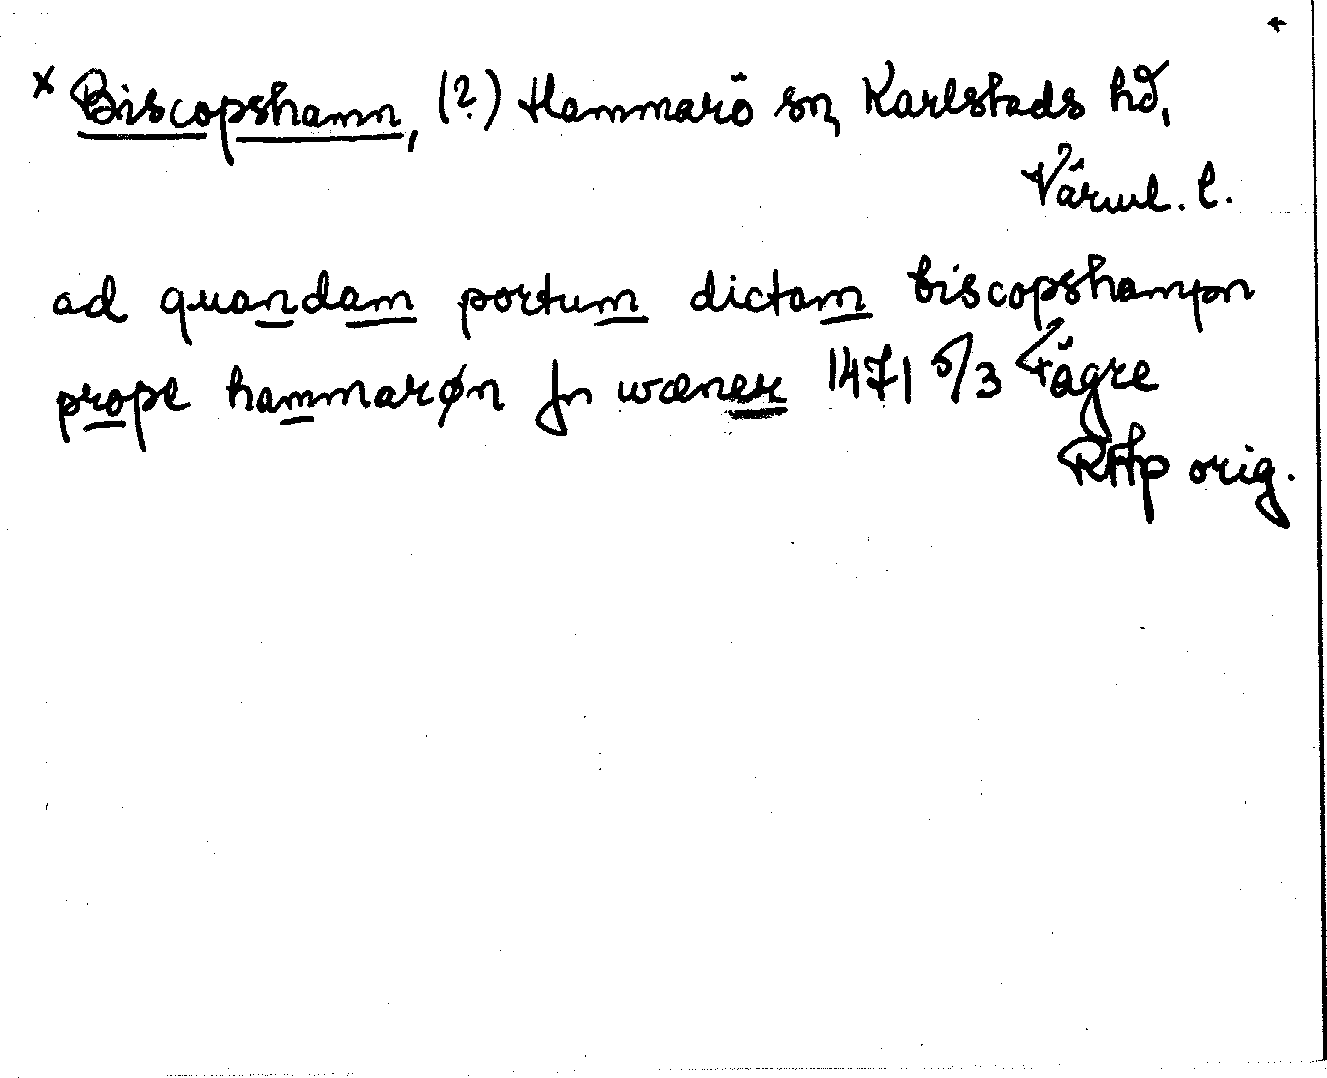 x Biscopshamn, (?) Hammarö sn, Karlstads hd,
Värml. l.
ad quandam portum dictam biscopshampn
prope hammarøn Jn wæner 1471 5/3 Fägre
RAp orig.